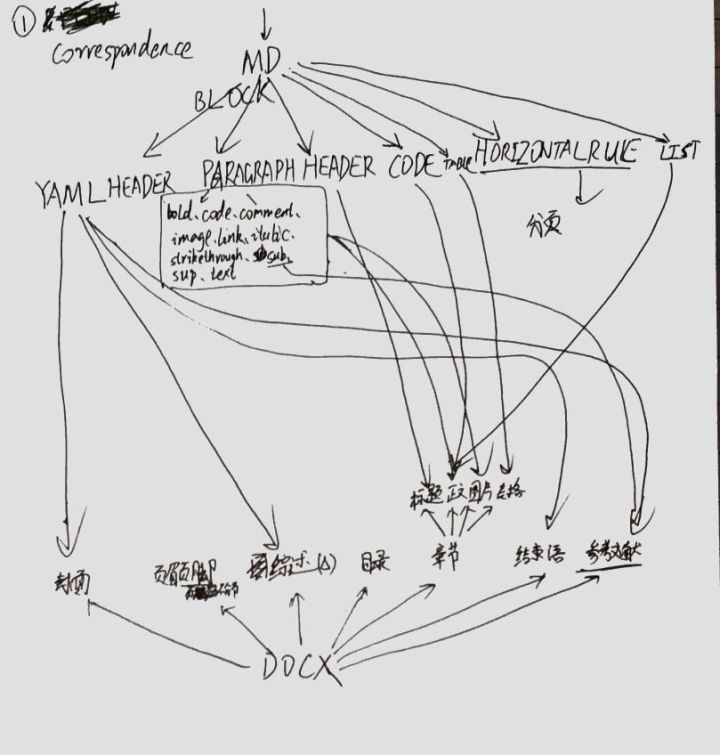 ①
Correspondence
MD
BLOCK
YAML HEADER PARAGRAPH HEADER CODE TABLE HORIZONTALRULE LIST
bold、code、comment、
image、link、italic、
strikethrough、sub、
sup、text
分页
标题 正文 图片 表格
封页 页眉页脚 综述(A) 目录 章节 结束语 参考文献
DOCX